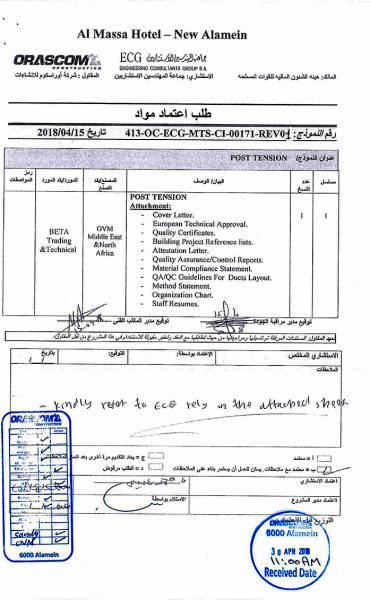 Al Massa Hotel – New Alamein
ORASCOM
CONSTRUCTION
ECG جماعة المهندسين الاستشاريين
ENGINEERING CONSULTANTS GROUP S.A.
المالك: هيئة الشئون المالية للقوات المسلحة
الاستشاري: جماعة المهندسين الاستشاريين
المقاول : شركة أوراسكوم للانشاءات
طلب اعتماد مواد
رقم النموذج: 413-OC-ECG-MTS-CI-00171-REV01 تاريخ 2018/04/15
عنوان النموذج/ POST TENSION
مسلسل
عدد النسخ
البيان/ الوصف
المصنع/بلد الصنع
المورد/بلد المورد
رمز المواصفات
1
1
POST TENSION
Attachment:
- Cover Letter.
- European Technical Approval.
- Quality Certificates.
- Building Project Reference lists.
- Attestation Letter.
- Quality Assurance/Control Reports.
- Material Compliance Statement.
- QA/QC Guidelines For Ducts Layout.
- Method Statement.
- Organization Chart.
- Staff Resumes.
OVM
Middle East
&North
Africa
BETA
Trading
&Technical
توقيع مدير مراقبة الجودة
توقيع مدير المكتب الفني
الاستشاري المختص
الاعتماد بواسطة:
التوقيع:
- kindly refer to ECG rely in the attached sheet
أ = معتمد
ج = يعاد التقديم مرة أخرى بعد
ب = معتمد مع ملاحظات، يمكن للعمل أن يستمر بناء على الملاحظات
د = الطلب مرفوض
اعتماد الاستشاري
اعتماد مدير المشروع
الاستلام بواسطة
ORASCOM
CONSTRUCTION
6000 Alamein
ORASCOM
CONSTRUCTION
6000 Alamein
30 APR 2018
11:00 AM
Received Date